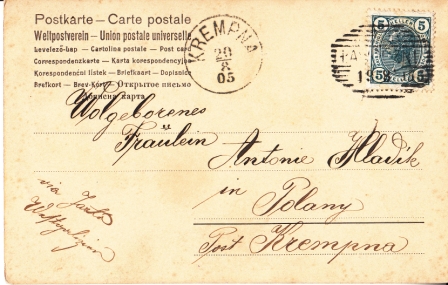 Postkarte – Carte postale
Weltpostverein – Union postale universelle
Levelező-lap – Cartolina postale – Post card
Correspondenzkarte – Karta korrespondencyjna
Korespondenční lístek – Briefkaart – Dopisnice
Brefkort – Brev-Kort – Открытое письмо
Дописна карта
KREMPNA
20
8
05
5 HELLER 5
5 5
19 8
Wolgeborenes
Fräulein
Antonie Hladík
in
Polany
Post Krempna
via Jasło
Westgalizien